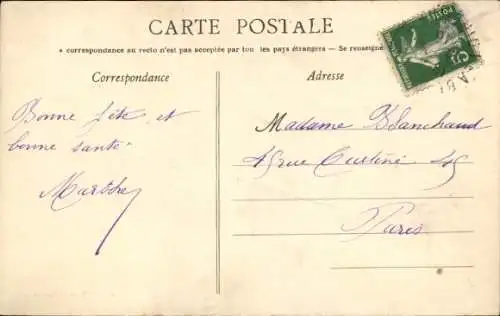 CARTE POSTALE
* correspondance au recto n'est pas acceptée par tou les pays étrangers — Se renseigne
Correspondance
Adresse
Bonne fête et
bonne santé
Marthe
Madame Blanchaud
45 rue 45
Paris
POSTES
5